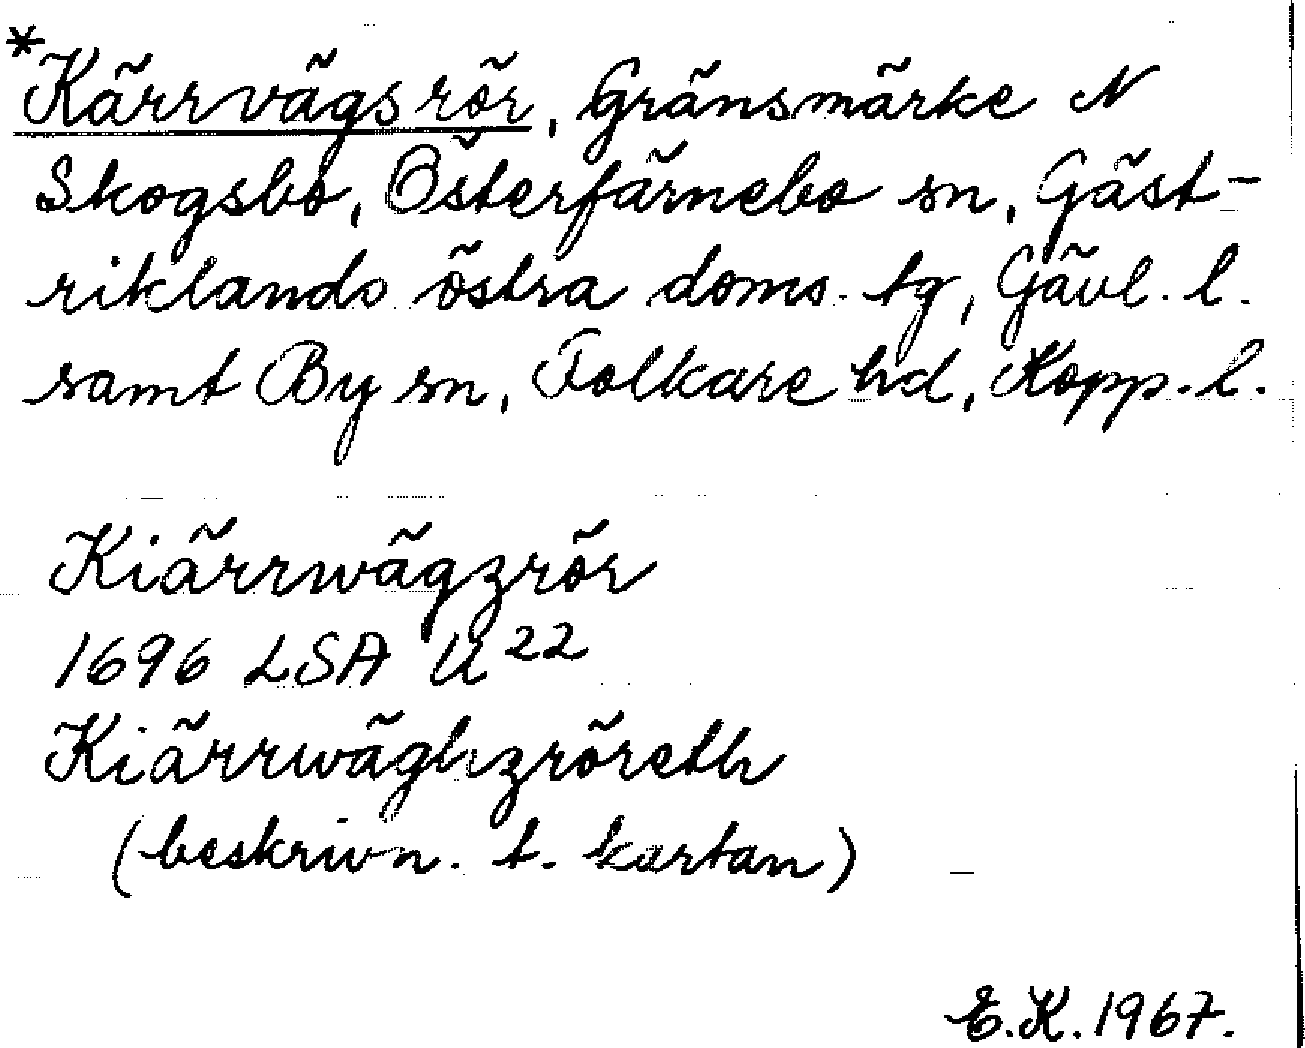 *Kärrvägsrör, Gränsmärke N
Skogsbo, Österfärnebo sn, Gäst-
riklands östra doms. tg, Gävl. l.
samt By sn, Folkare hd, Kopp. l.
Kiärrwägzrör
1696 LSA U 22
Kiärrwäghzröreth
(beskrivn. t. kartan)
E.K. 1967.